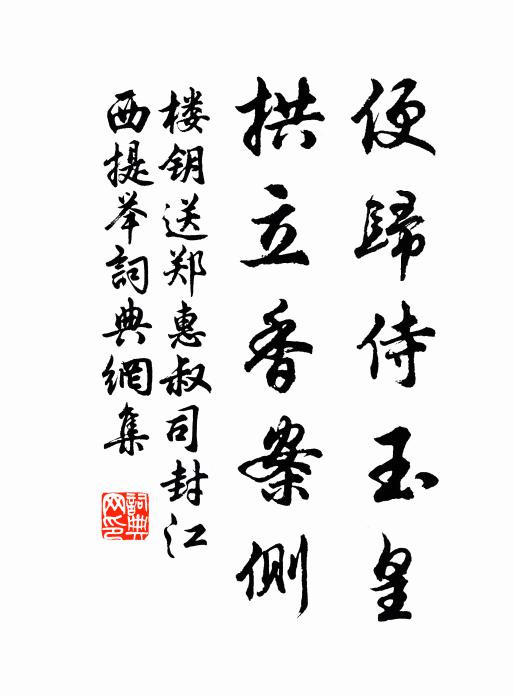 便歸侍玉皇
拱立香案側
楼钥送郑惠叔司封江
西提举詞典網集
詞典
网印